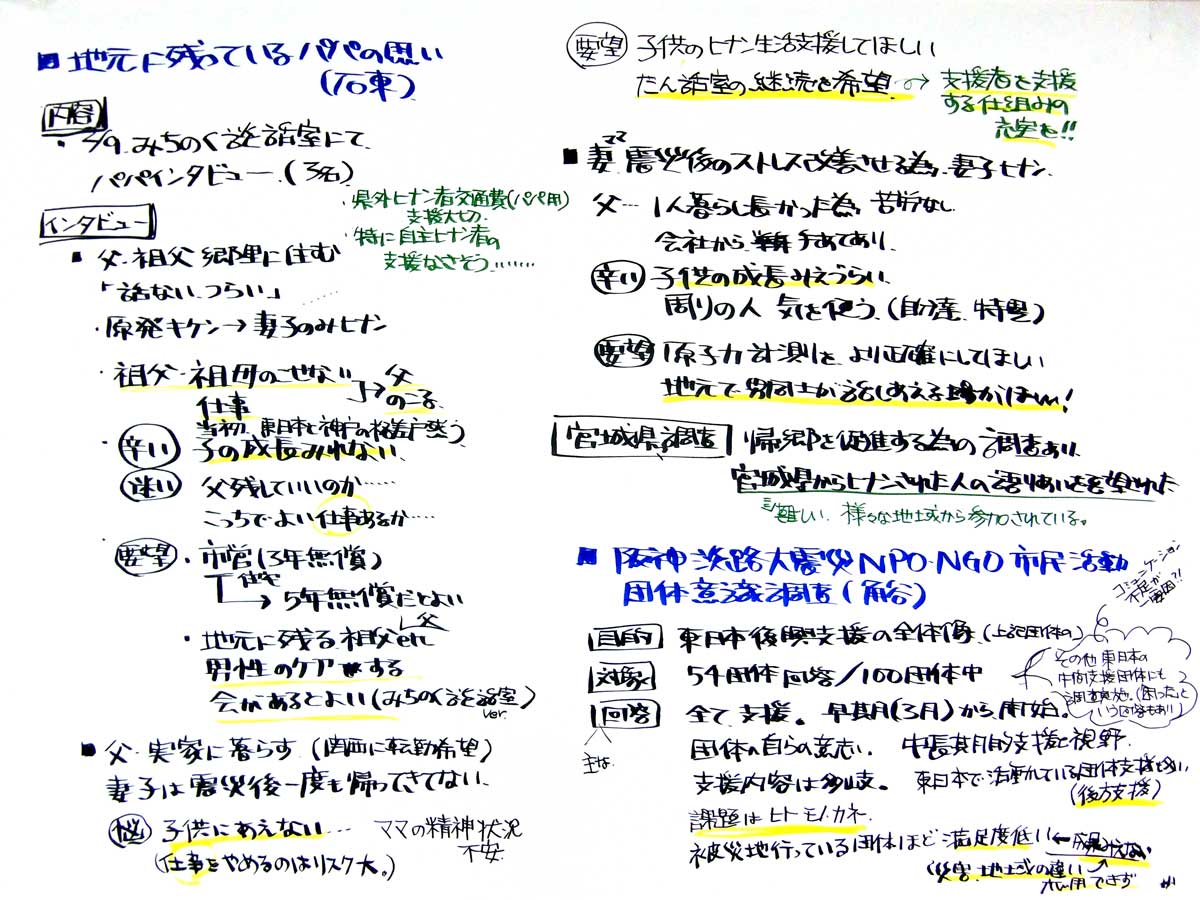 ■ 地元に残っているパパの思い
(石東)
内容
・2/9 みちのく談話室にて
パパインタビュー (3名)
・県外ヒナン者交通費(パパ用)
支援大切
・特に自主ヒナン者の
支援なさそう……
インタビュー
■ 父・祖父 郷里に住む
「話ない、つらい」……
・原発キケン→妻子のみヒナン
・祖父・祖母のせわ
仕事
→父
のこる
当初、東日本と神戸の格差戸惑う
辛い 子の成長みれない
迷い 父残していいのか……
こっちでよい仕事あるか……
要望 ・市営(3年無償)
住宅
→5年無償だとよい
・地元に残る祖父 etc
父
男性のケアする
会があるとよい(みちのく談話室)
ver.
■ 父・実家に暮らす (関西に転勤希望)
妻子は震災後一度も帰ってきてない
悩 子供にあえない… ママの精神状況
不安
(仕事をやめるのはリスク大。)
要望 子供のヒナン生活支援してほしい
だん話室の継続を希望 → 支援者を支援
する仕組みの
充実を!!
■ 妻 震災後のストレス改善させる為、妻子ヒナン
父… 1人暮らし長かった為、苦労なし
会社から 手あてあり
辛い 子供の成長みえづらい
周りの人 気を使う (自分達 特異)
要望 原子力計測を より正確にしてほしい
地元で男同士が話しあえる場がほしい!
宮城県調査 帰郷を促進する為の調査あり
宮城県からヒナンされた人の語りあいを要望された
難しい 様々な地域から参加されている。
■ 阪神淡路大震災NPO・NGO市民活動
団体意識調査 (角谷)
コミュニケーション
不足が
一要因?!
目的 東日本復興支援の全体像 (上記団体の)
対象 54団体回答/100団体中
その他東日本の
中間支援団体にも
調査実施。(困ったと
いう回答もあり)
回答 全て支援。早期月(3月)から開始。
主は
団体の自らの意志。中長期的支援と視野
支援内容は多岐。 東日本で活動されている団体支援も多い
(後方支援)
課題はヒト・モノ・カネ
被災地行っている団体ほど満足度低い ← 成果みえない
(災害・地域の違い
活用できず